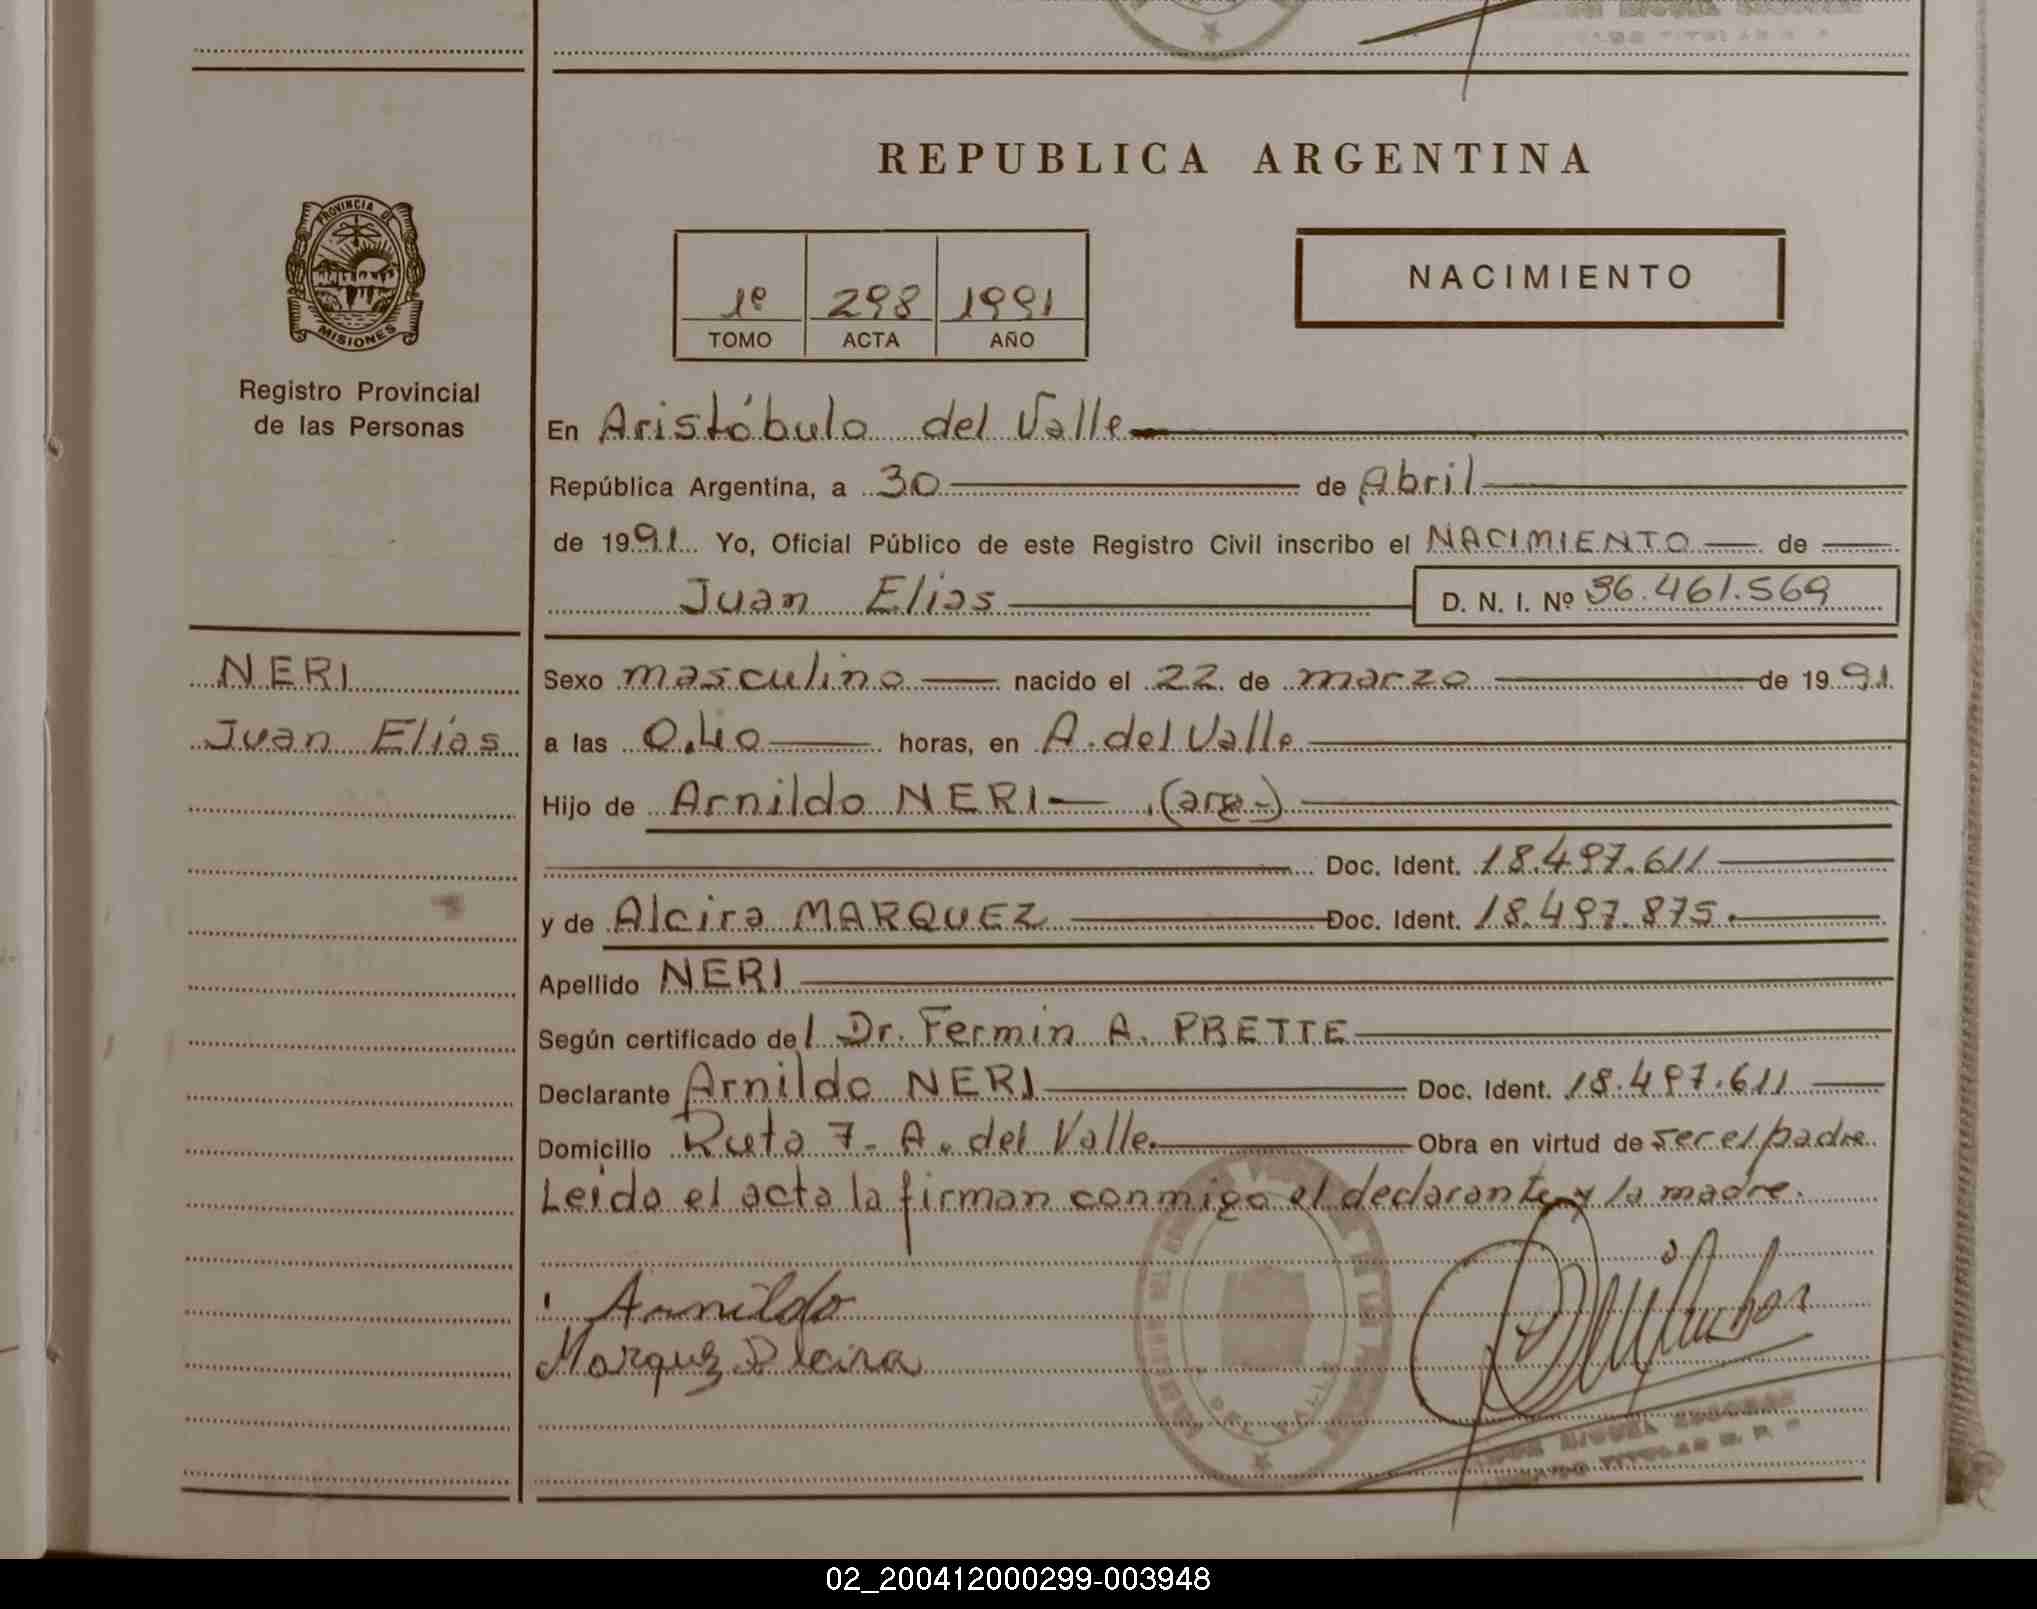 REPUBLICA ARGENTINA
PROVINCIA DE
MISIONES
Registro Provincial
de las Personas
NACIMIENTO
1º 298 1991
TOMO ACTA AÑO
En Aristóbulo del Valle
República Argentina, a 30 de Abril
de 1991 Yo, Oficial Público de este Registro Civil inscribo el NACIMIENTO de
Juan Elias D. N. I. Nº 36.461.569
NERI
Juan Elias
Sexo masculino nacido el 22 de marzo de 1991
a las 0.40 horas, en A. del Valle
Hijo de Arnildo NERI (arg.)
Doc. Ident. 18.497.611
y de Alcira MARQUEZ Doc. Ident. 18.497.875.
Apellido NERI
Según certificado del Dr. Fermin A. PRETTE
Declarante Arnildo NERI Doc. Ident. 18.497.611
Domicilio Ruta 7- A. del Valle. Obra en virtud de ser el padre
Leido el acta la firman conmigo el declarante y la madre.
Arnildo
Marquez Alcira
DEL VALLE
MIGUEL
02_200412000299-003948